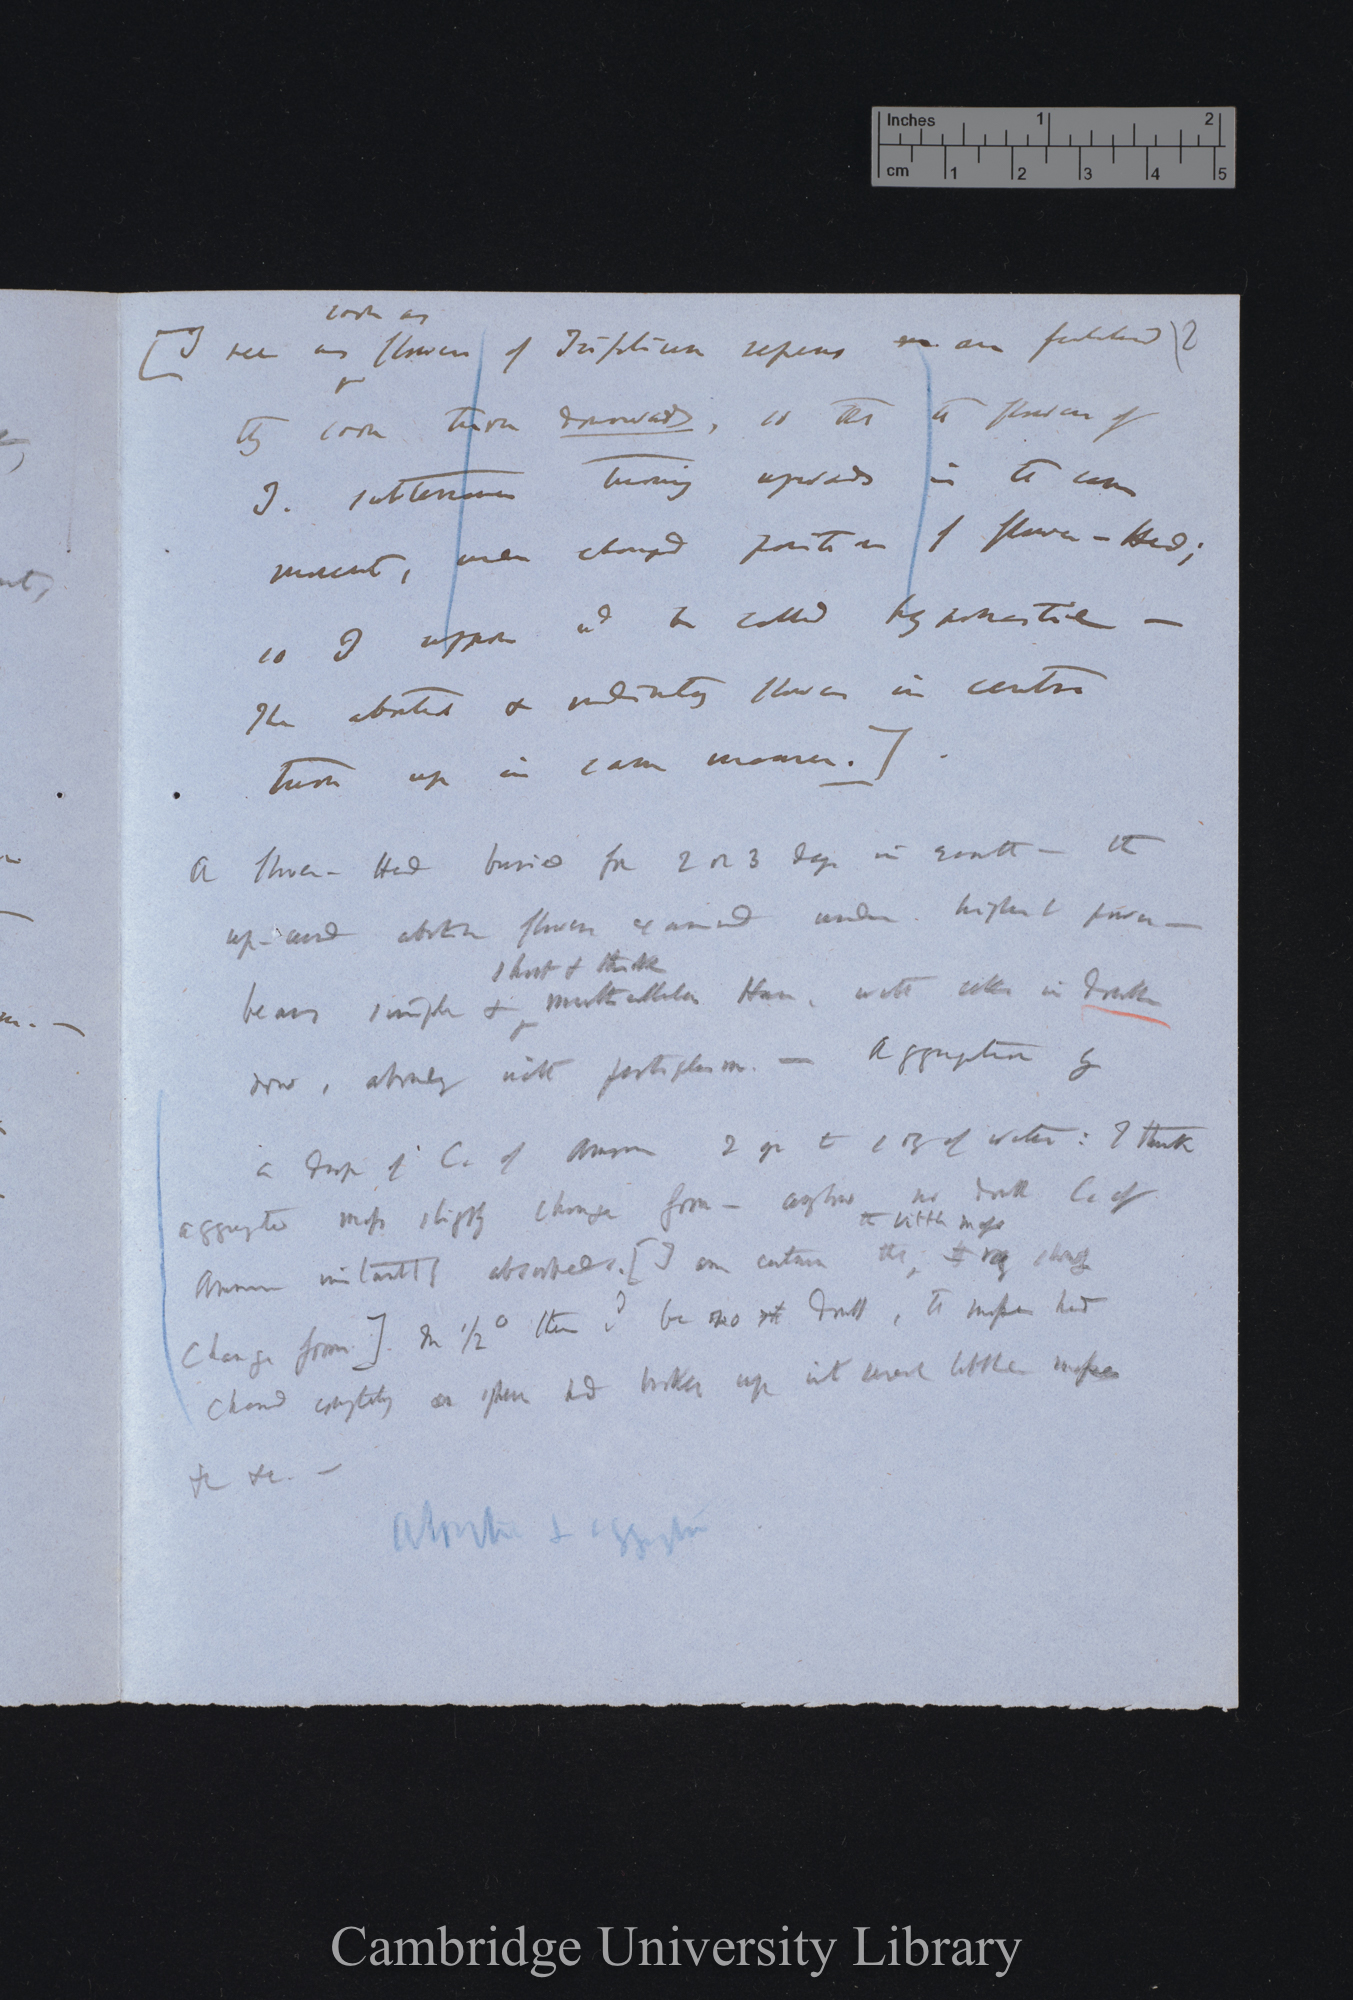 Inches 1 2
cm 1 2 3 4 5
soon as
[I see as flowers of Trifolium repens are fertilised
2
they soon turn downwards, so that the flowers of
T. subterraneum turning upwards in the same
movement, under changed position of flower-Head;
so I suppose wd be called hyponastic —
The aborted & rudimentary flowers in centre
turn up in same manner.]
A flower-Head buried for 2 or 3 days in earth — the
up-turned abortive flowers examined under highest power —
short & thick
bears simple & multicellular Hairs, with cells in double
row, with protoplasm. — Aggregation by
a drop of C. of Ammon 2 gr to 1 oz of water: I think
aggregated mass slightly change form — anyhow no doubt C. of
the little mass
Ammon instantly absorbed. [I am certain that slowly
change form]. In 1/2° there cd be no doubt, the masses had
changed completely one sphere had broken up into several little masses
&c &c. —
Absorption & aggregation
Cambridge University Library